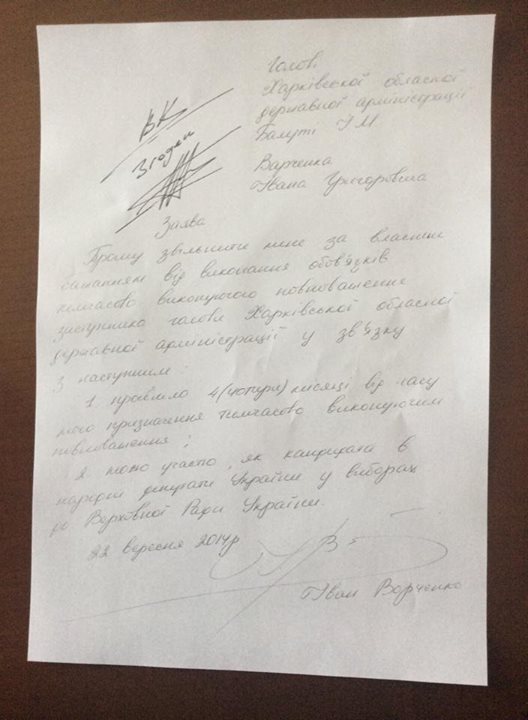 Голові
Харківської обласної
державної адміністрації
Балуті І М
Варченка
Івана Григоровича
ВК
Згоден
Заява
Прошу звільнити мене за власним
бажанням від виконання обов'язків
тимчасово виконуючого повноваження
заступника голови Харківської обласної
державної адміністрації у зв'язку
з наступним:
1 пройшло 4(чотири) місяці від часу
мого призначення тимчасово виконуючим
повноваження;
2 мою участю, як кандидата в
народні депутати України у виборах
до Верховної Ради України.
22 вересня 2014р
Іван Варченко